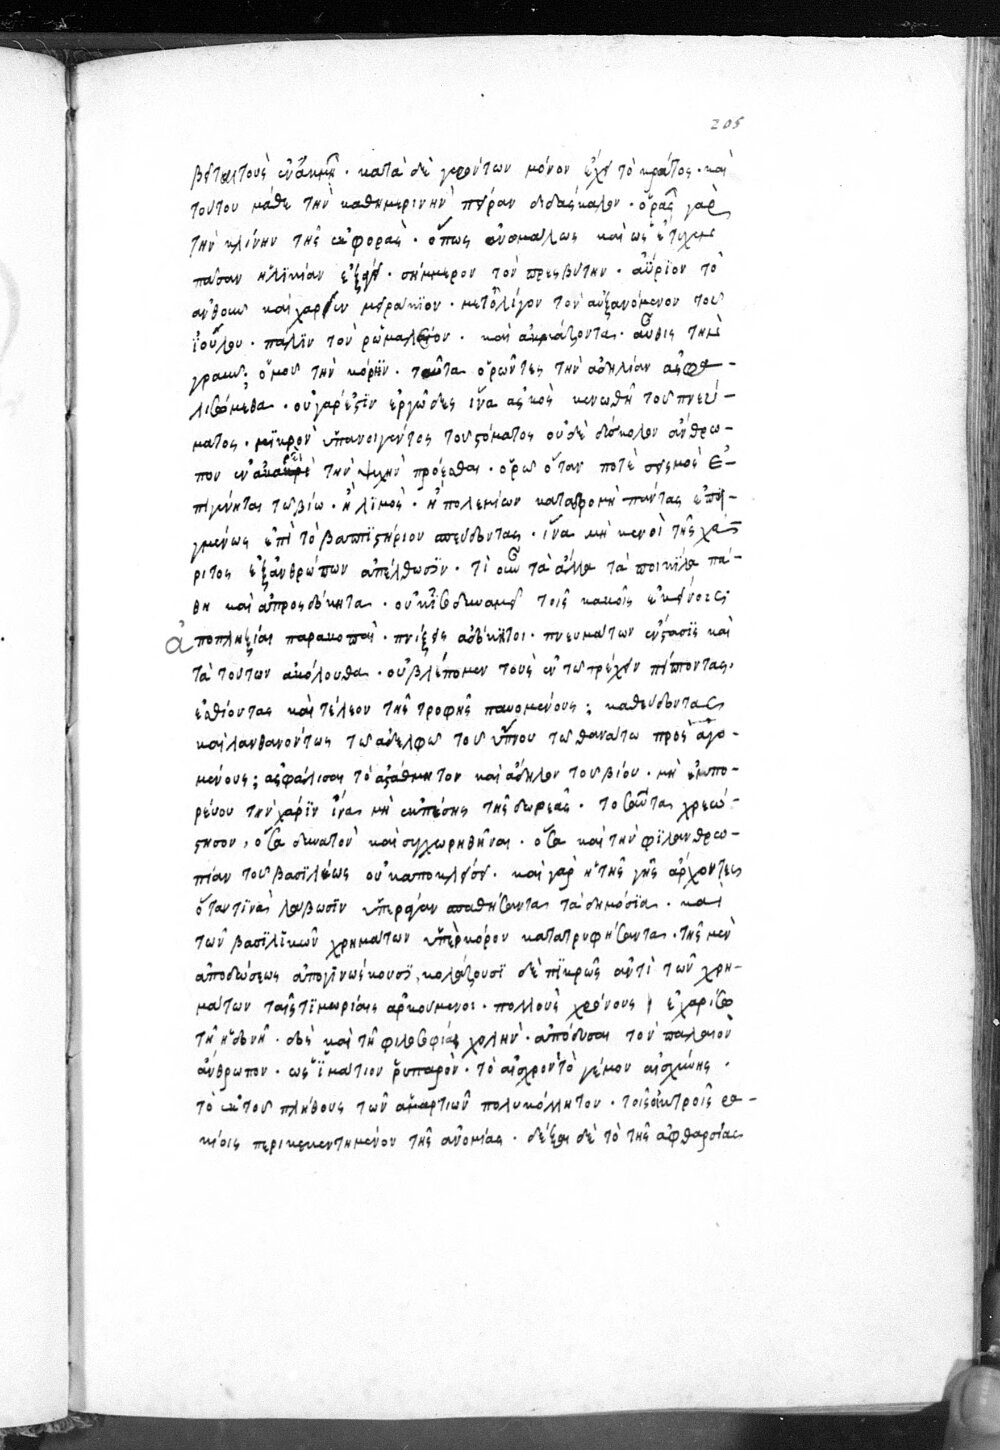 205
βύτας τοὺς ἐν ἀκμῆ · κατὰ δὲ γερόντων μόνον ἔχει τὸ κράτος · καὶ
τούτου μάθε τὴν καθημερινὴν πεῖραν διδάσκαλον · ὁρᾶς γὰρ
τὴν κλίνην τῆς ἐκφορᾶς · ὅπως ἀνωμάλως καὶ ὡς ἔτυχε
πᾶσαν ἡλικίαν ἐξάγει · σήμερον τὸν πρεσβύτην · αὔριον τὸ
ἄνθους καὶ χαρίεν μειράκιον · μετ' ὀλίγον τὸν αὐξανόμενον τοῦ
ἰούλου · πάλιν τὸν ῥωμαλαίον · καὶ ἀκμάζοντα · αὖθις τὴν
γραῦν · ὁμοῦ τὴν κόρην · ταῦτα ὁρῶντες τὴν ἀδηλίαν ἀσφα-
λισώμεθα · οὐ γάρ ἐστιν ἐργῶδες ἵνα ἀσκὸς κενωθῆ τοῦ πνεύ-
ματος · μικρὸν ὑπανοιγέντος τοῦ στόματος οὐδὲ δύσκολον ἄνθρω-
πον ἐν ἀκαρεῖ τὴν ψυχὴν προέσθαι · ὅρω ὅταν ποτὲ σεισμὸς ἐ-
πιγίνηται τῶ βίω · ἢ λιμὸς · ἢ πολεμίων καταδρομὴ πάντας ἐπει-
γμένως ἐπὶ τὸ βαπτιστήριον σπεύδοντας · ἵνα μὴ κενοὶ τῆς χά-
ριτος ἐξ ἀνθρώπων ἀπέλθωσιν · τί οὖν τὰ ἄλλα τὰ ποικίλα πά-
θη καὶ ἀπροσδόκητα · οὐκ ἰσοδυναμεῖ τοῖς κακοῖς ἐκείνοις
ἀποπληξίαι παρακοπαὶ · πνίξεις ἀδόκητοι · πνευμάτων ἐνστάσεις καὶ
τὰ τούτων ἀκόλουθα · οὐ βλέπομεν τοὺς ἐν τῶ τρέχειν πίπτοντας ·
ἐσθίοντας καὶ τέλεον τῆς τροφῆς παυομένους ; καθεύδοντας
καὶ λανθανόντως τῶ ἀδελφῶ τοῦ ὕπνου τῶ θανάτω προσαγο-
μένους ; ἀσφάλισαι τὸ ἀστάθμητον καὶ ἄδηλον τοῦ βίου · μὴ ἐμπο-
ρεύου τὴν χάριν ἵνα μὴ ἐκπέσης τῆς δωρεᾶς · τοσαῦτα χρεώ-
στησον, ὅσα δυνατὸν καὶ συγχωρηθῆναι · ὅσα καὶ τὴν φιλανθρω-
πίαν τοῦ βασιλέως οὐκ ἀποκλείει · καὶ γὰρ οἱ τῆς γῆς ἄρχοντες
ὅταν τινὰς λάβωσιν ὑπεράγαν σπαθήσαντας τὰ δημόσια · καὶ
τῶν βασιλικῶν χρημάτων ὑπέρκορον κατατρυφήσαντας · τῆς μὲν
ἀποδώσεως ἀπογινώσκουσι, κολάζουσι δὲ πικρῶς ἀντὶ τῶν χρη-
μάτων ταῖς τιμωρίαις ἀρκούμενοι · πολλοὺς χρόνους ἐχαρίσω
τῆ ἡδονῆ · δὸς καὶ τῆ φιλοσοφίας χολὴν · ἀπόδυσαι τὸν παλαιὸν
ἄνθρωπον · ὡς ἱμάτιον ῥυπαρὸν · τὸ αἰσχρὸν τὸ γέμον αἰσχύνης ·
τὸ ἐκ τοῦ πλήθους τῶν ἁμαρτιῶν πολυκόλλητον · τοῖς οἰκτροῖς ῥα-
κίοις περικεκεντημένον τῆς ἀνομίας · δέξαι δὲ τὸ τῆς ἀφθαρσίας